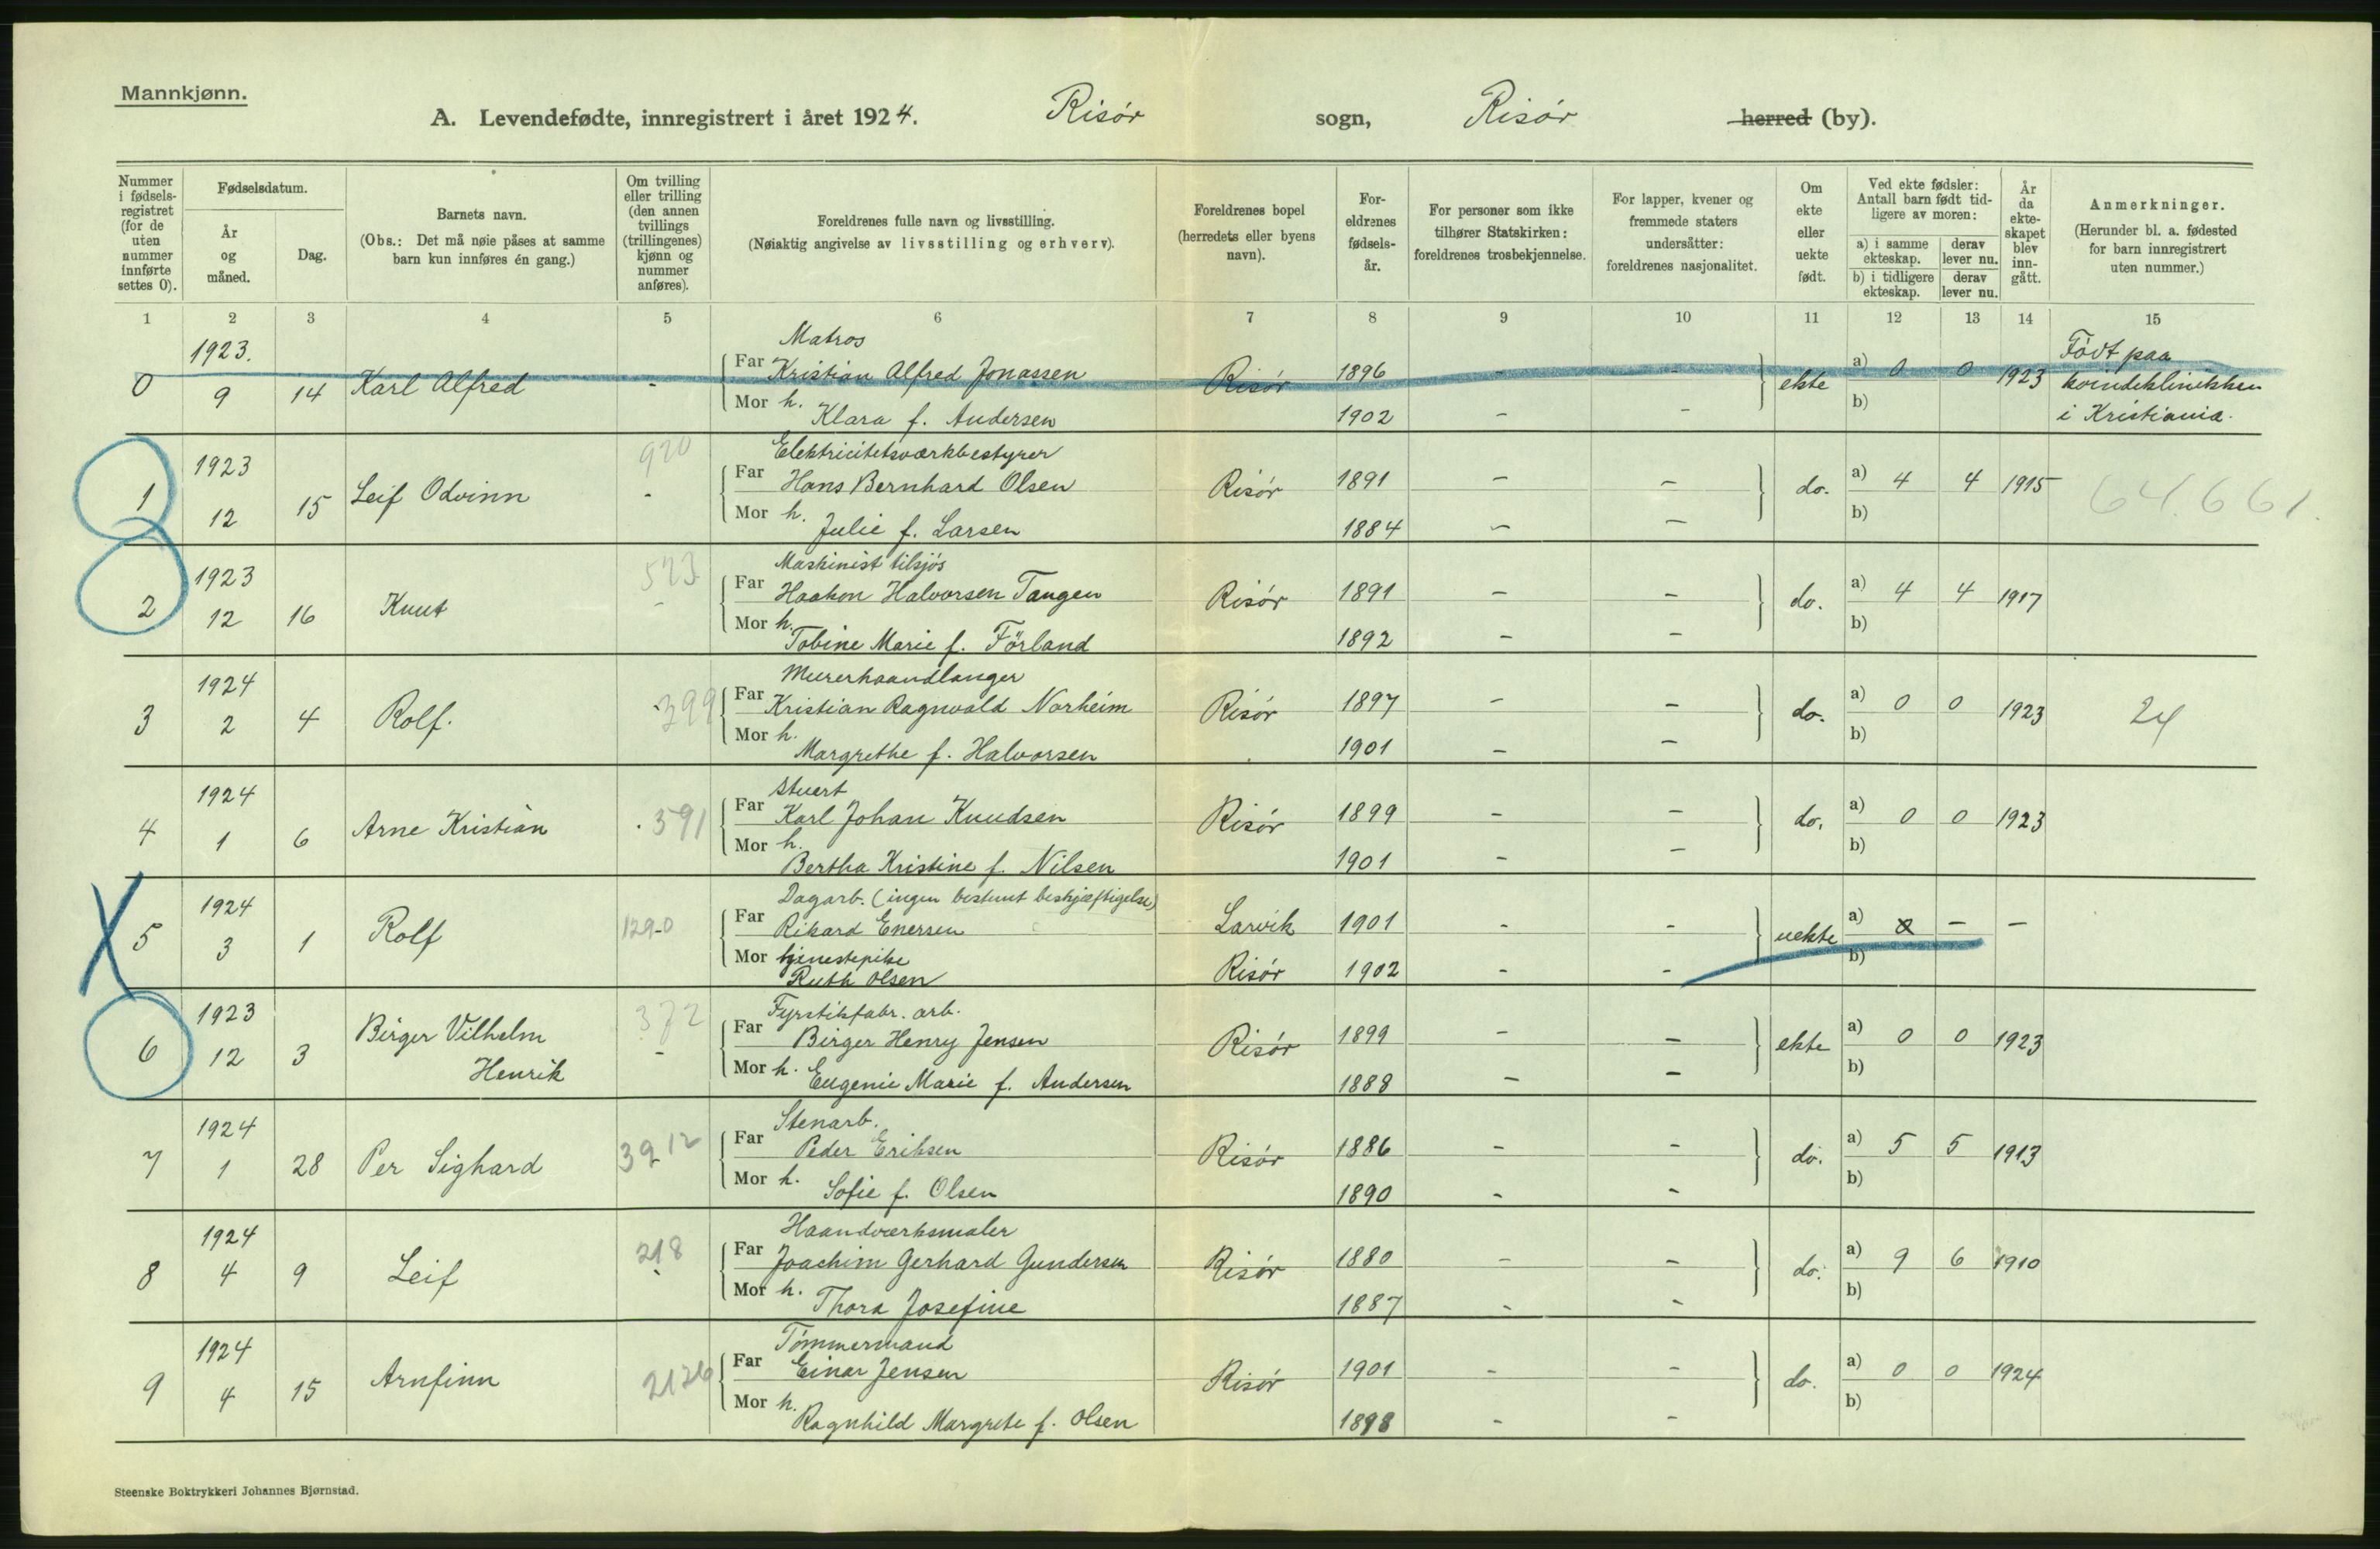 Mannkjønn.
A. Levendefødte, innregistrert i året 1924. Risór sogn, Risór herred (by).
Nummer i fødsels-registret (for de uten nummer innførte settes 0).
Fødselsdatum.
År og måned.
Dag.
Barnets navn.
(Obs.: Det må nøie påses at samme barn kun innføres én gang.)
Om tvilling eller trilling (den annen tvillings (trillingenes) kjønn og nummer anføres).
Foreldrenes fulle navn og livsstilling.
(Nøiaktig angivelse av livsstilling og erhverv).
Foreldrenes bopel (herredets eller byens navn).
For-eldrenes fødsels-år.
For personer som ikke tilhører Statskirken: foreldrenes trosbekjennelse.
For lapper, kvener og fremmede staters undersåtter: foreldrenes nasjonalitet.
Om ekte eller uekte født.
Ved ekte fødsler: Antall barn født tid-ligere av moren:
a) i samme ekteskap.
derav lever nu.
b) i tidligere ekteskap.
derav lever nu.
År da ekte-skapet blev inn-gått.
Anmerkninger.
(Herunder bl. a. fødested for barn innregistrert uten nummer.)
1 2 3 4 5 6 7 8 9 10 11 12 13 14 15
1923. Matros Födt paa
0 9 14 Karl Alfred - Far Kristian Alfred Jonassen Risór 1896 - - ekte a) 0 0 1923 kvindeklinikken
Mor h. Klara f. Andersen 1902 - - b) i Kristiania.
920 Elektricitetsværkbestyrer
1 1923 12 15 Leif Odvinn - Far Hans Bernhard Olsen Risór 1891 - - do. a) 4 4 1915 64.661.
Mor h. Julie f. Larsen 1884 - - b)
573 Maskinist tilsjós
2 1923 12 16 Knut - Far Haakon Halvorsen Tangen Risór 1891 - - do. a) 4 4 1917
Mor h. Tobine Marie f. Förland 1892 - - b)
Murerhaandlanger
3 1924 2 4 Rolf. 399 Far Kristian Ragnvald Norheim Risór 1897 - - do. a) 0 0 1923 24
Mor h. Margrethe f. Halvorsen 1901 - - b)
Stuert
4 1924 1 6 Arne Kristian 391 Far Karl Johan Knudsen Risór 1899 - - do. a) 0 0 1923
Mor h. Bertha Kristine f. Nilsen 1901 - - b)
Dagarb. (ingen bestemt beskjæftigelse)
5 1924 3 1 Rolf 1290 Far Rikard Enersen Larvik 1901 - - uekte a) 0 - -
Mor tjenestepike Ruth Olsen Risór 1902 - - b)
372 Fyrstikfabr. arb.
6 1923 12 3 Birger Vilhelm Henrik - Far Birger Henry Jensen Risór 1899 - - ekte a) 0 0 1923
Mor h. Eugenie Marie f. Andersen 1888 - - b)
Stenarb.
7 1924 1 28 Per Sighard 3912 Far Peder Eriksen Risór 1886 - - do. a) 5 5 1913
Mor h. Sofie f. Olsen 1890 - - b)
Haandværksmaler
8 1924 4 9 Leif 218 Far Joachim Gerhard Gundersen Risór 1880 - - do. a) 9 6 1910
Mor h. Thora Josefine 1887 - - b)
Tömmermand
9 1924 4 15 Arnfinn 2126 Far Einar Jensen Risór 1901 - - do. a) 0 0 1924
Mor h. Ragnhild Margrete f. Olsen 1898 - - b)
Steenske Boktrykkeri Johannes Bjørnstad.